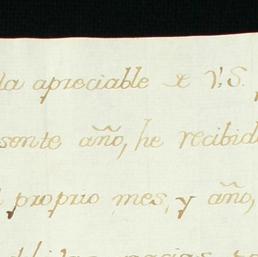 la apreciable de V.S.
sente año, he recibid
l proprio mes, y año,